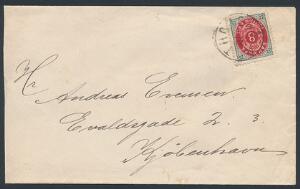 Hr
Andreas Evensen
Evaldsgade 2. 3
Kjøbenhavn
6